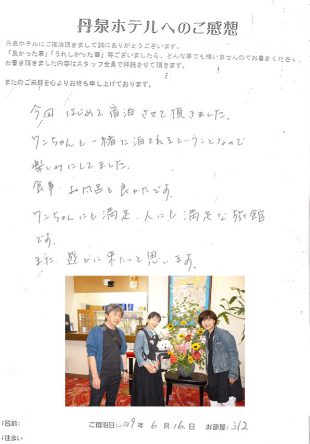 丹泉ホテルへのご感想
丹泉ホテルにご宿泊頂きまして誠にありがとうございます。
「良かった事」「うれしかった事」等ございましたら、どんな事でも構いませんのでお書きください。
お書き頂きました内容はスタッフ全員で拝読させて頂きます。
またのご来館を心よりお待ち申し上げております。
今回 はじめて宿泊させて頂きました。
ワンちゃんと一緒に泊まれるということなので
楽しみにしてました。
食事、お風呂と良かたです。
ワンちゃんにも満足、人にも満足な旅館
です。
また 遊びに来たいと思います。
名前:
ご宿泊日: 年 6 月 16 日 お部屋: 312
住まい